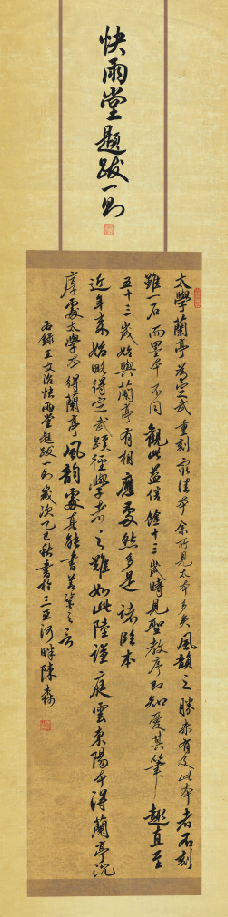 快雨堂題跋一則
太學蘭亭為定武重刻最佳本余所見太本多矣風韻之勝亦有過此本者石刻
雖一石而墨本不同觀此益信余十三歲時見聖教序即知愛其筆趣直至
五十三歲始與蘭亭有相應處然多是諸臨本
近年來始略得定武蹊徑學者之難如此陸謹庭雲東陽本得蘭亭沉
厚處太學本得蘭亭風韻處真能書者深之言
右錄王文治快雨堂題跋一則歲次乙巳秋書於三亞河畔陳森